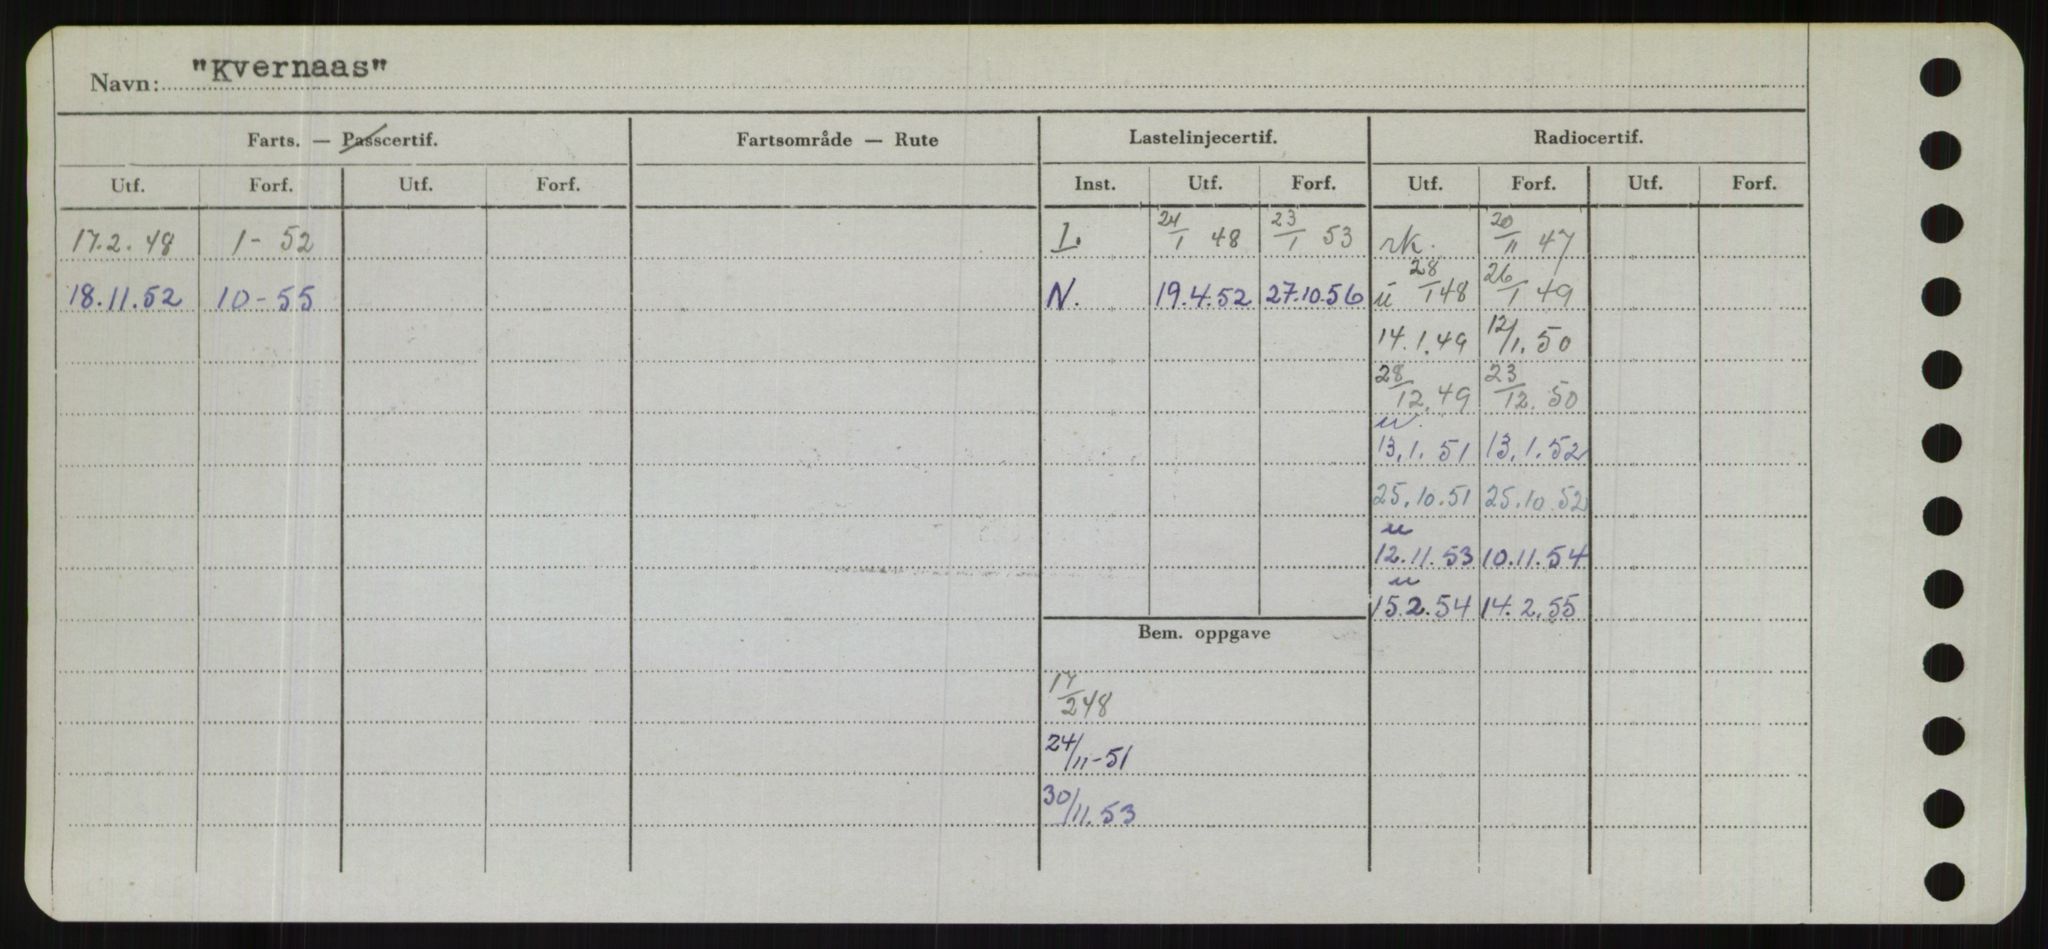 Navn: "Kvernaas"
Farts. — Passcertif. Fartsområde — Rute Lastelinjecertif. Radiocertif.
Utf. Forf. Utf. Forf. Inst. Utf. Forf. Utf. Forf. Utf. Forf.
17.2.48 1-52 I. 24/1 48 23/1 53 rk. 20/11 47
18.11.52 10-55 N. 19.4.52 27.10.56 u 28/1 48 26/1 49
14.1.49 12/1.50
28/12.49 23/12.50
u.
13.1.51 13.1.52
25.10.51 25.10.52
u
12.11.53 10.11.54
u
15.2.54 14.2.55
Bem. oppgave
17/2 48
24/11-51
30/11.53